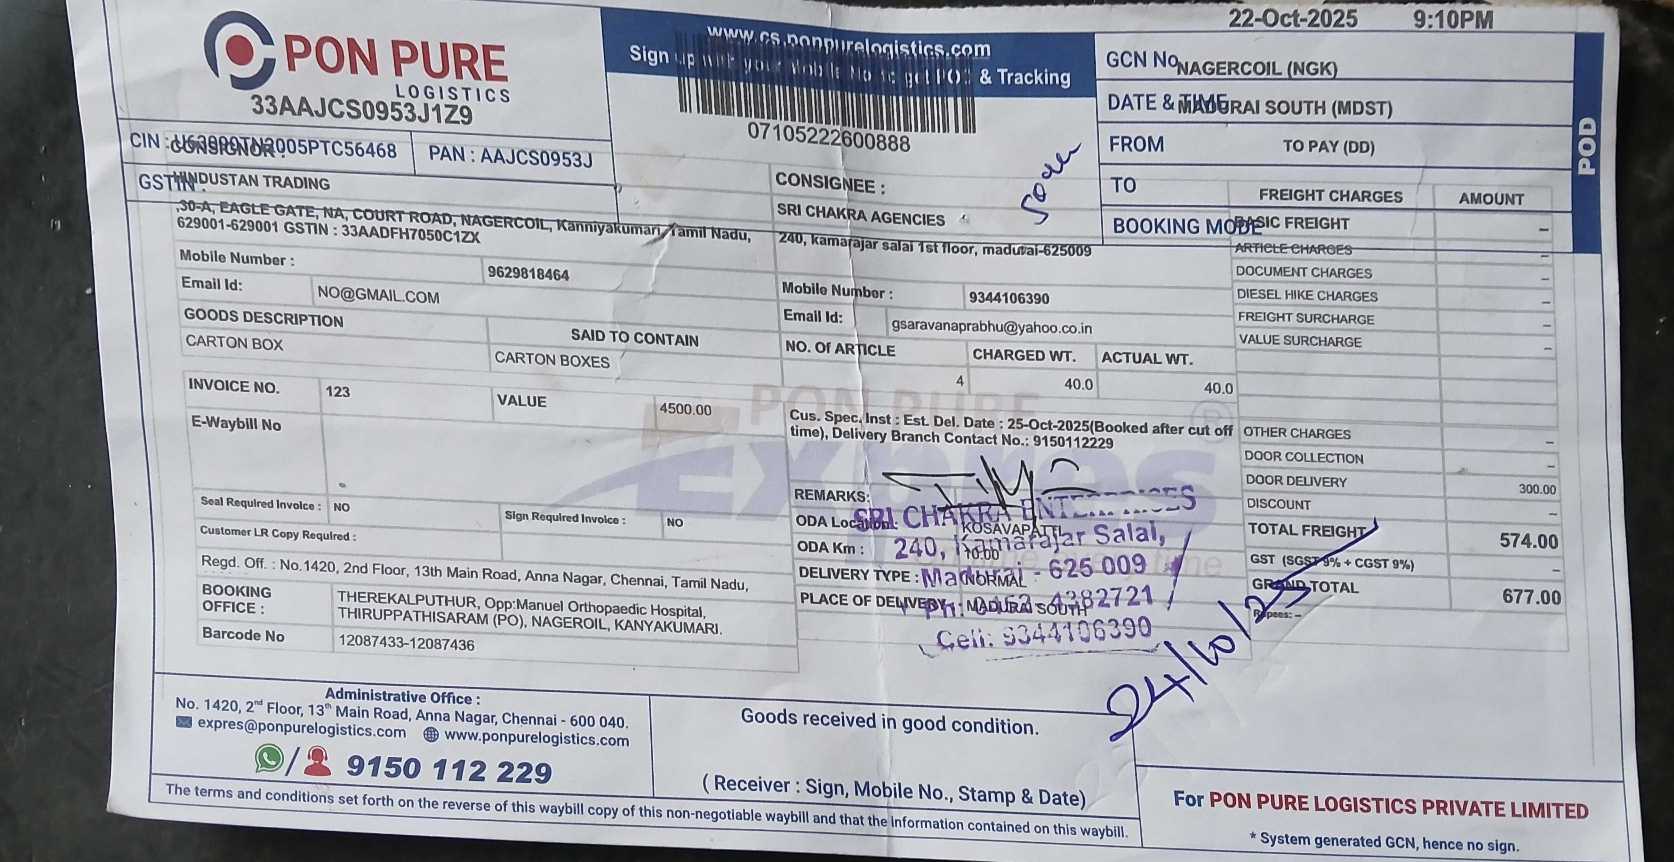 PON PURE
LOGISTICS
33AAJCS0953J1Z9
CIN : U63090TN2005PTC56468
PAN : AAJCS0953J
GSTIN :
www.cs.ponpurelogistics.com
Sign up with your Mobile No to get POD & Tracking
07105222600888
22-Oct-2025 9:10PM
GCN No
NAGERCOIL (NGK)
DATE & TIME
MADURAI SOUTH (MDST)
FROM
TO PAY (DD)
TO
BOOKING MODE
POD
CONSIGNOR :
HINDUSTAN TRADING
,30-A, EAGLE GATE, NA, COURT ROAD, NAGERCOIL, Kanniyakumari, Tamil Nadu,
629001-629001 GSTIN : 33AADFH7050C1ZX
Mobile Number : 9629818464
Email Id: NO@GMAIL.COM
CONSIGNEE :
SRI CHAKRA AGENCIES
240, kamarajar salai 1st floor, madurai-625009
Mobile Number : 9344106390
Email Id: gsaravanaprabhu@yahoo.co.in
GOODS DESCRIPTION SAID TO CONTAIN NO. Of ARTICLE CHARGED WT. ACTUAL WT.
CARTON BOX CARTON BOXES 4 40.0 40.0
INVOICE NO. 123 VALUE 4500.00
E-Waybill No
Cus. Spec. Inst : Est. Del. Date : 25-Oct-2025(Booked after cut off
time), Delivery Branch Contact No.: 9150112229
PON PURE
Expres
Seal Required Invoice : NO Sign Required Invoice : NO
Customer LR Copy Required :
Regd. Off. : No.1420, 2nd Floor, 13th Main Road, Anna Nagar, Chennai, Tamil Nadu,
BOOKING OFFICE : THEREKALPUTHUR, Opp:Manuel Orthopaedic Hospital,
THIRUPPATHISARAM (PO), NAGEROIL, KANYAKUMARI.
Barcode No 12087433-12087436
REMARKS:
ODA Location: KOSAVAPATTI
ODA Km : 10.00
DELIVERY TYPE : NORMAL
PLACE OF DELIVERY : MADURAI SOUTH
SRI CHAKRA ENTERPRISES
240, Kamarajar Salai,
Madurai - 625 009
4382721
Cell: 9344106390
24/10/25
FREIGHT CHARGES AMOUNT
BASIC FREIGHT –
ARTICLE CHARGES –
DOCUMENT CHARGES –
DIESEL HIKE CHARGES –
FREIGHT SURCHARGE –
VALUE SURCHARGE –
OTHER CHARGES –
DOOR COLLECTION –
DOOR DELIVERY 300.00
DISCOUNT –
TOTAL FREIGHT 574.00
GST (SGST 9% + CGST 9%) –
GRAND TOTAL 677.00
Rupees: –
Administrative Office :
No. 1420, 2nd Floor, 13th Main Road, Anna Nagar, Chennai - 600 040.
expres@ponpurelogistics.com www.ponpurelogistics.com
/ 9150 112 229
Goods received in good condition.
( Receiver : Sign, Mobile No., Stamp & Date)
The terms and conditions set forth on the reverse of this waybill copy of this non-negotiable waybill and that the information contained on this waybill.
For PON PURE LOGISTICS PRIVATE LIMITED
* System generated GCN, hence no sign.